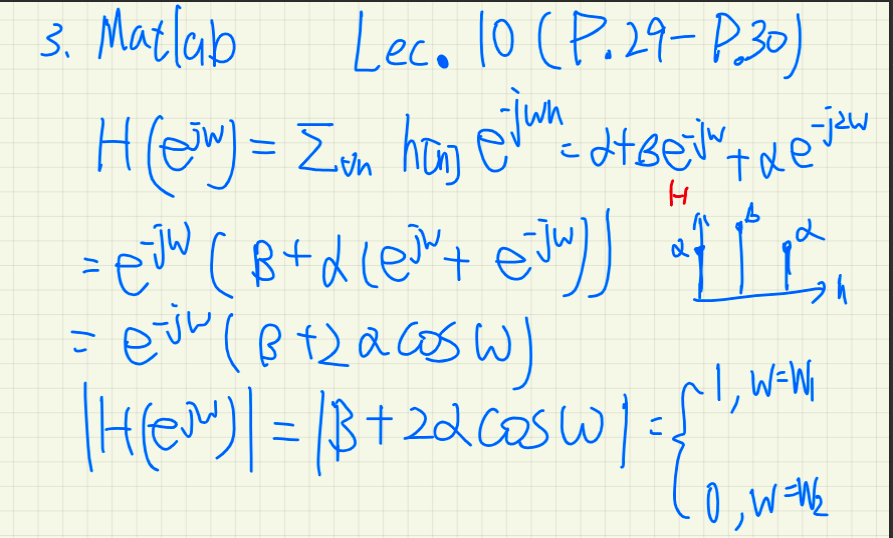 3. Matlab Lec. 10 (P.29-P.30)
H(e^jw) = Σ_∀n h[n] e^-jwn = α+βe^-jw + αe^-j2w
H
= e^-jw (β+α(e^jw + e^-jw))
α β α n
= e^-jw (β+2αcosw)
|H(e^jw)| = |β+2αcosw| = { 1, w=w1
0, w=w2